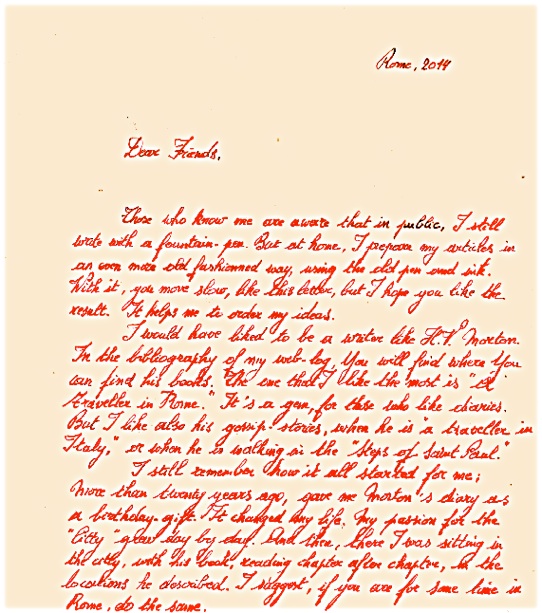 Rome, 2014
Dear Friends,
Those who know me are aware that in public, I still
wrote with a fountain-pen. But at home, I prepare my articles in
an even more old fashionned way, using the old pen and ink.
With it, you move slow, like this letter, but I hope you like the
result. It helps me to order my ideas.
I would have liked to be a writer like H.V. Morton.
In the bibliography of my web-log, You will find where You
can find his books. The one that I like the most is "A
Traveller in Rome." It's a gem, for those who like diaries.
But I like also his gossip-stories, when he is a "traveller in
Italy," or when he is walking in the "Steps of Saint Paul."
I still remember how it all started for me;
more than twenty years ago, gave me Morton's diary as
a birthday-gift. It changed my life. My passion for the
"City" grew day by day. And then, there I was sitting in
the city, with his book, reading chapter after chapter, in the
locations he described. I suggest, if you are for some time in
Rome, do the same.